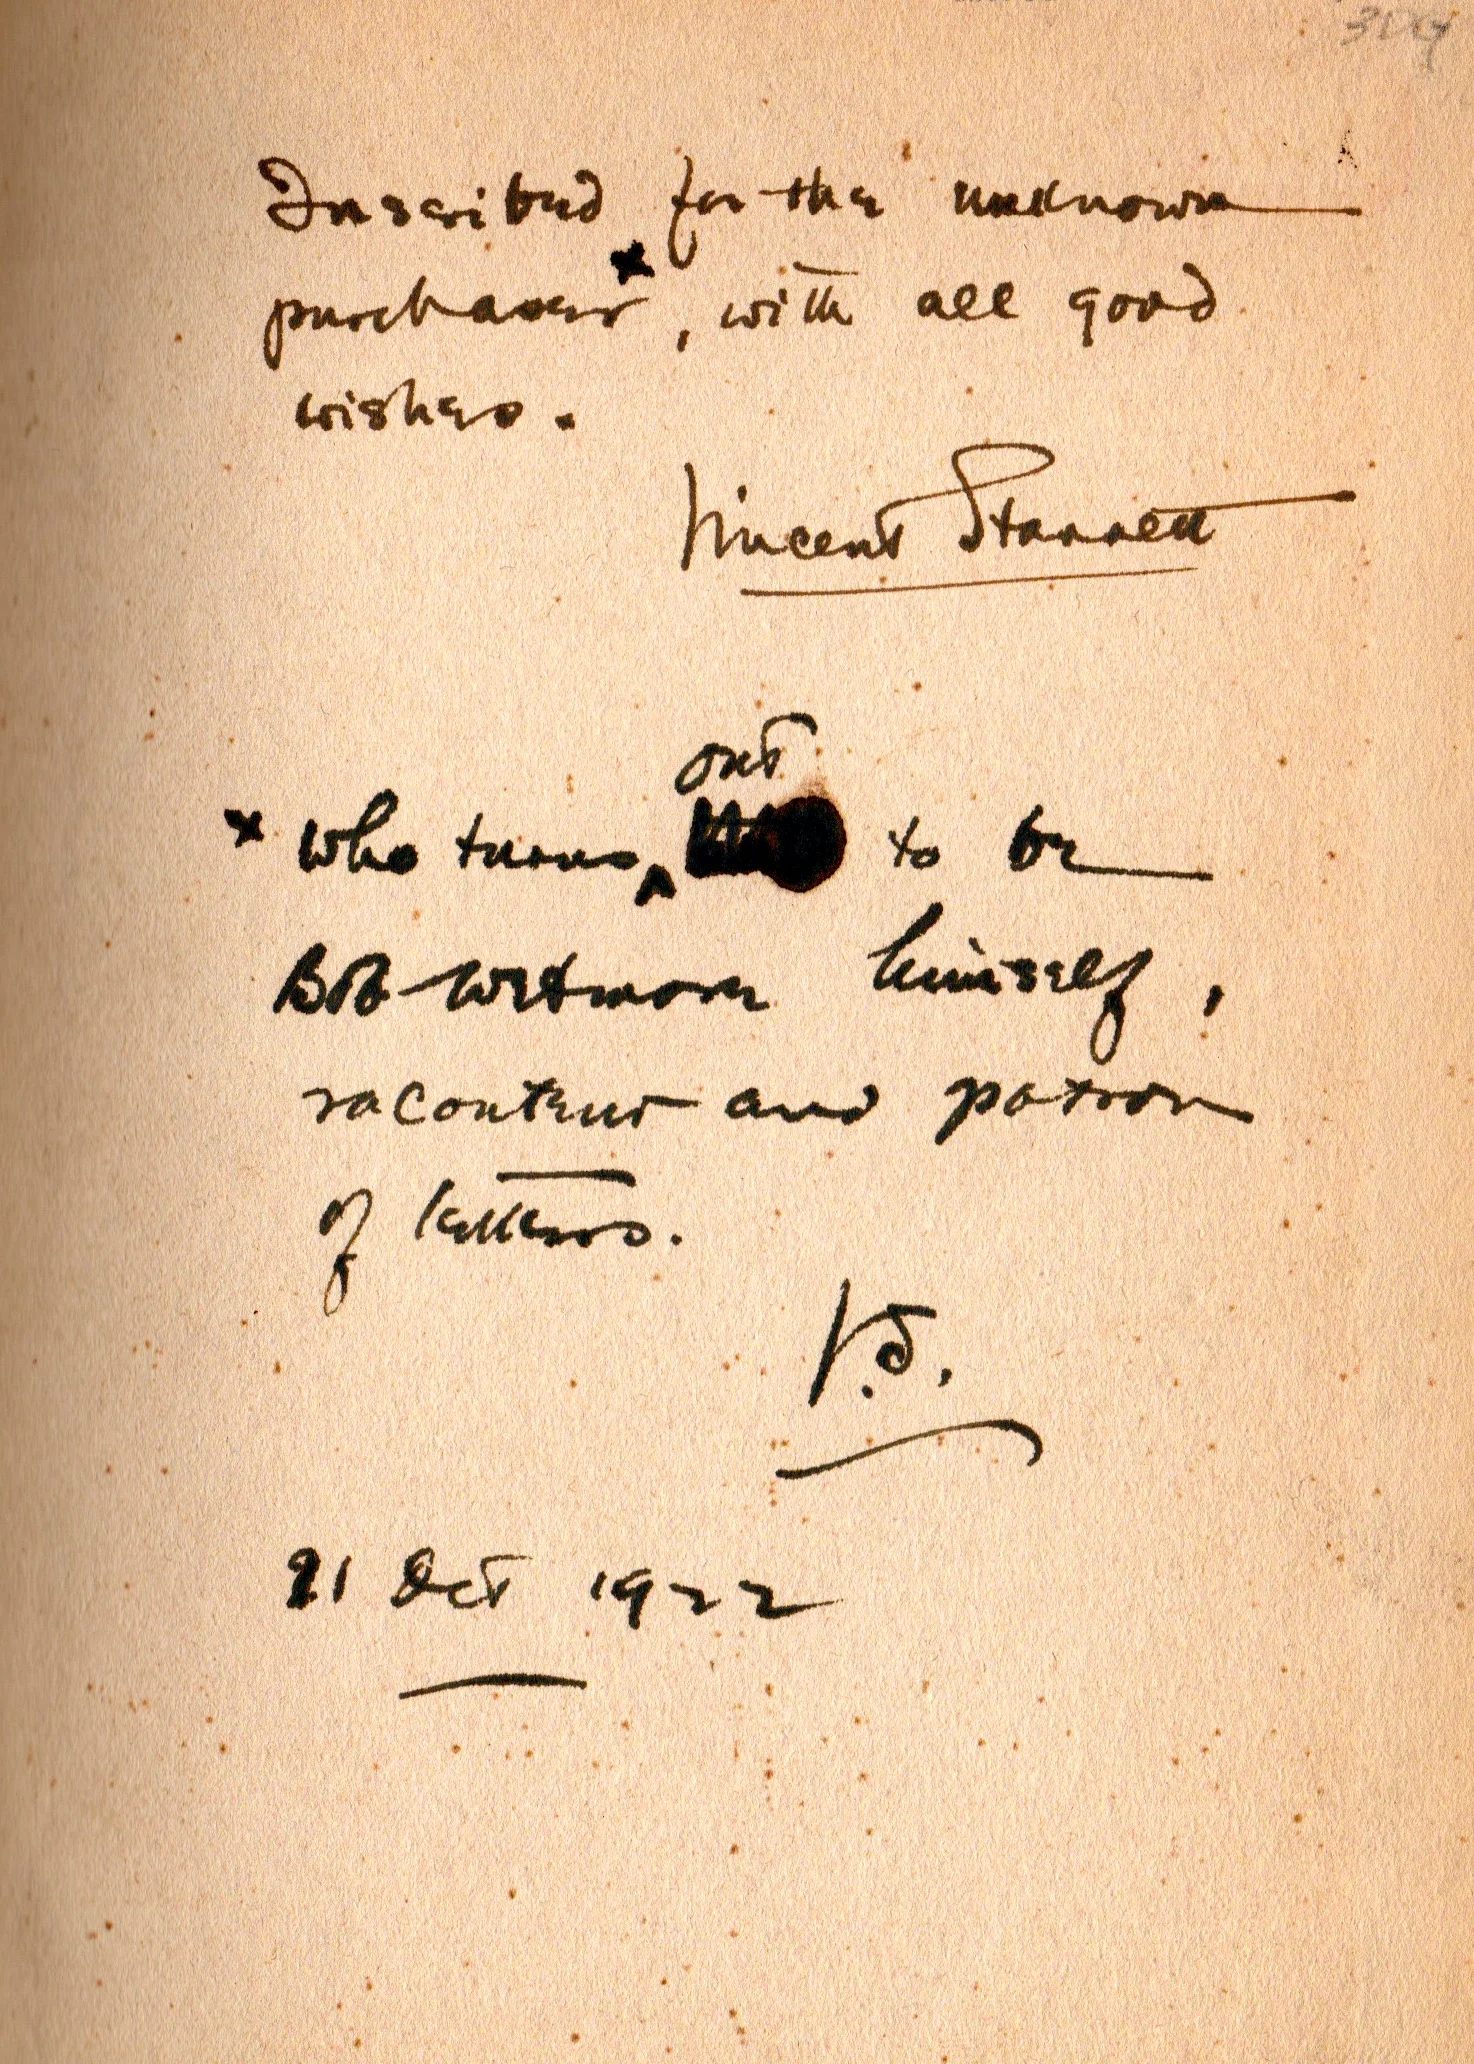 Inscribed for the unknown
purchaser x, with all good
wishes.
Vincent Starrett
out
x who turns ^ to be
Bob Wetmore himself,
raconteur and patron
of letters.
V.S.
21 Oct 1922